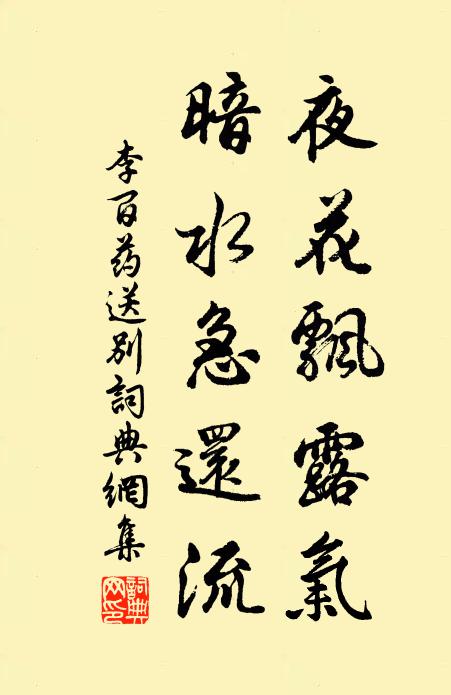 夜花飄露氣
暗水急還流
李百药送别詞典網集
詞典網印